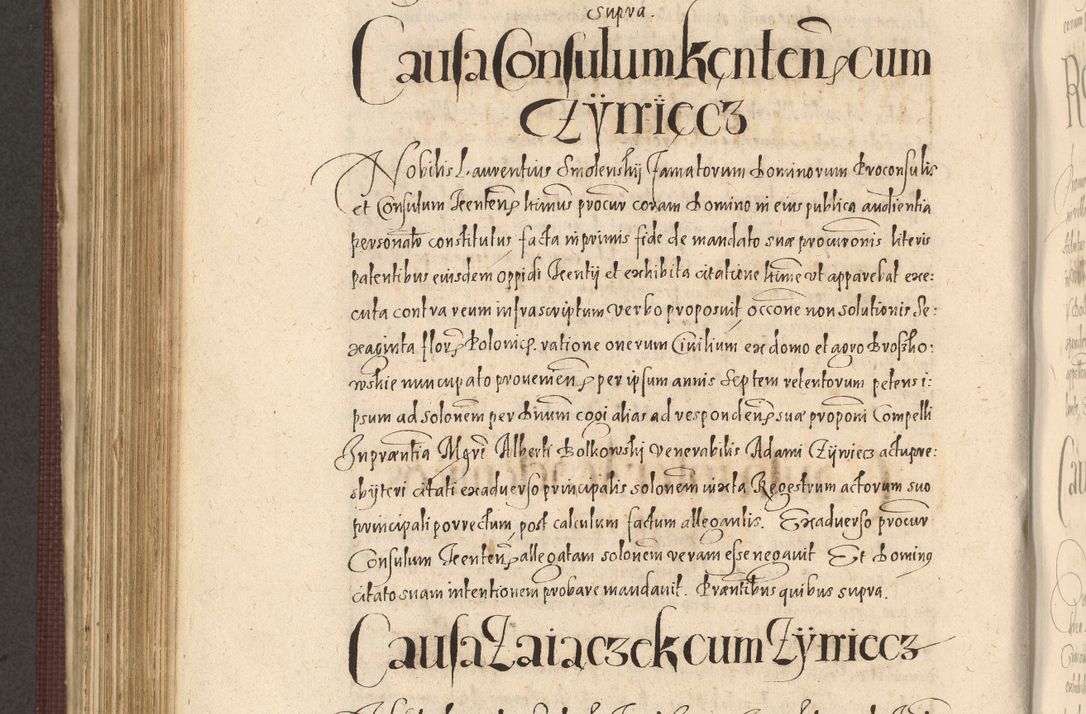 supra.
Causa Consulum Kęnten cum
Zÿrnięcz
Nobilis Laurentius Smolenskij Famatorum Dominorum Proconsulis
et Consulum Kenten ltimus procur coram Domino in eius publica audientia
personalr constitutus facta inprimis fide de mandato suæ procuronis literis
patentibus eiusdem oppidi Kentij et exhibita citatione ltime ut apparebat exe:
cuta contra reum infrascriptum verbo proposuit occone non solutionis Se:
xaginta flor Polonic. ratione onerum Ciuilium ex domo et agro Broszko:
wskie nuncupato prouenien per ipsum annis Septem retentorum petens i:
psum ad solonem per Dnum cogi alias ad responden suæ proponi Compelli
In præntia Mgri Alberti Bolkowskij venerabilis Adami Zÿrniecz actu pre:
sbÿteri citati ex aduerso principalis solonem iuxta Regestrum actorum suo
principali porrectum, post calculum factum allegantis. Ex aduerso procur
Consulum Kenten allegatam solonem veram esse negauit Et Dominus
citato suam intentionem probare mandauit. Præntibus quibus supra.
Causa Zaiączek cum Zÿrniecz